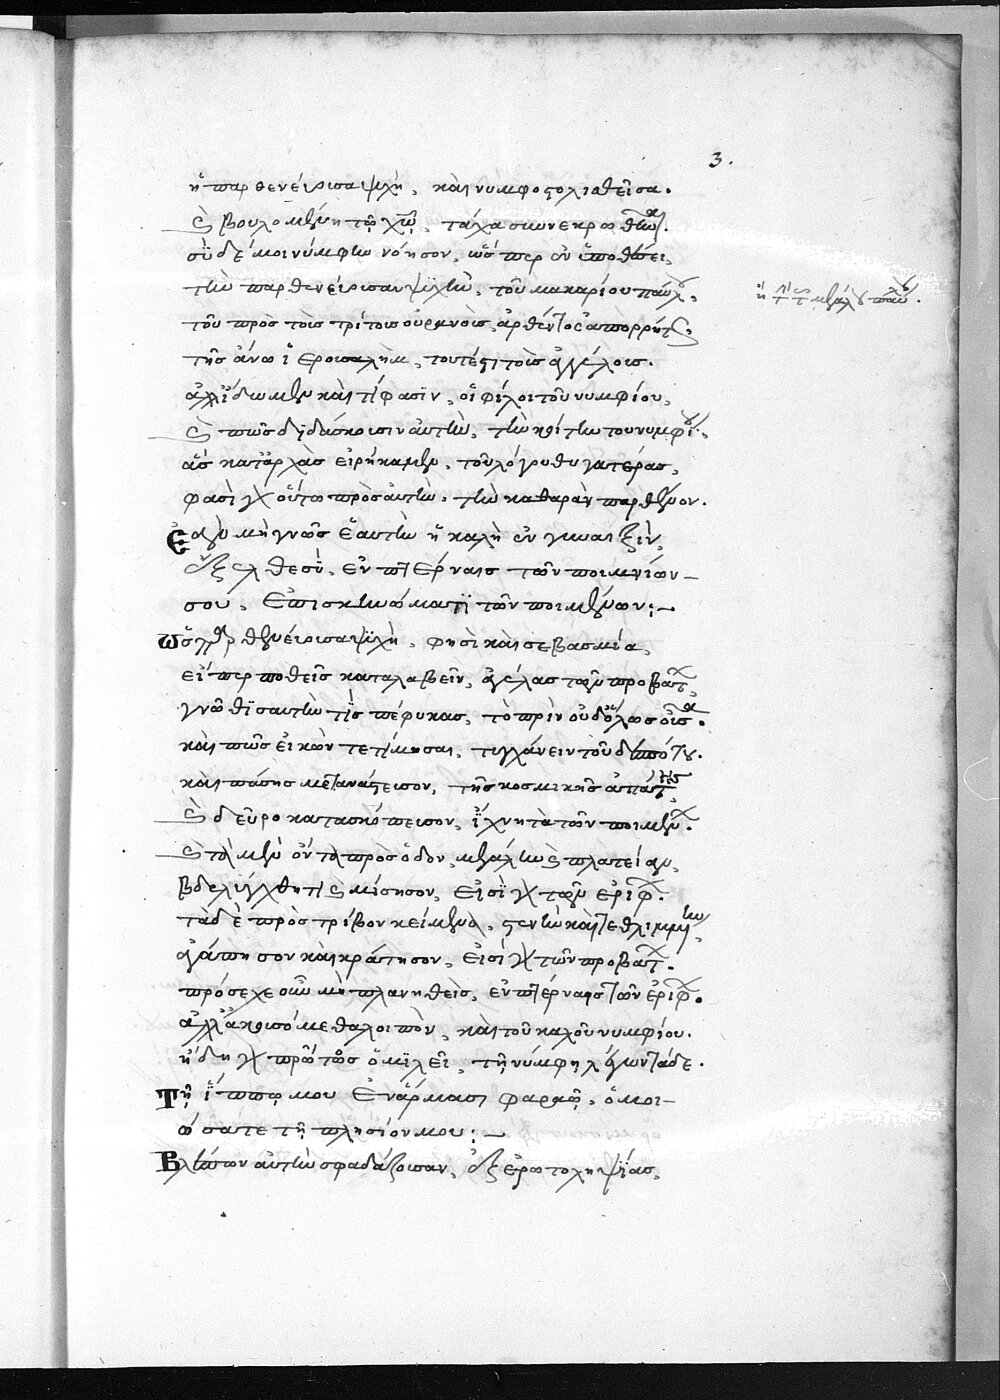 3.
ἡ παρθενεύουσα ψυχὴ, καὶ νυμφοστολισθεῖσα.
καὶ βουλομένη τῷ χῷ, τάχα συννεκρωθῆναι.
σὺ δέ μοι νύμφην νόησον, ὥσπερ ἐν ὑποθέσει,
τὴν παρθενεύουσαν ψυχὴν, τοῦ μακαρίου παύλου,
ἢ τῆς τοῦ μεγάλου παύλου.
τοῦ πρὸς τοὺς τρίτους οὐρανοὺς, ἀρθέντος ἀπορρήτως,
τῆς ἄνω ἱερουσαλὴμ, τουτέστι τοῖς ἀγγέλοις.
ἀλλ' ἴδωμεν καὶ τί φασιν, οἱ φίλοι τοῦ νυμφίου,
καὶ πῶς διδάσκουσιν αὐτὴν, τὴν κοίτην τοῦ νυμφίου,
ἃς κατ' ἀρχὰς εἰρήκαμεν, τοῦ λόγου θυγατέρας,
φασὶ γὰρ οὕτω πρὸς αὐτὴν, τὴν καθαρὰν παρθένον.
Ἐὰν μὴ γνῷς ἑαυτὴν ἡ καλὴ ἐν γυναιξὶν,
ἔξελθε σὺ, ἐν πτέρναις τῶν ποιμνίων
σου, ἐπὶ σκηνώμασι τῶν ποιμένων:
Ὡς γὰρ θενεύουσα ψυχὴ, φησὶ καὶ σεβασμία,
εἴπερ ποθεῖς καταλαβεῖν, ἀγέλας τῶν προβάτων,
γνῶθι σαυτὴν τίς πέφυκας, τὸ πρὶν οὐδόλως οὖσα.
καὶ πῶς εἰκὼν τετίμησαι, τυγχάνειν τοῦ δεσπότου.
καὶ πάσης μετανάστευσον, τῆς κοσμικῆς ἀπάτης,
καὶ δεῦρο κατασκόπευσον, ἴχνη τὰ τῶν ποιμένων.
καὶ τὰ μὲν ὄντα πρὸς ὁδὸν, μεγάλην καὶ πλατεῖαν,
βδελύχθητι καὶ μίσησον, εἰσὶ γὰρ τῶν ἐρίφων.
τὰ δὲ πρὸς τρίβον κείμενα, στενὴν καὶ τεθλιμμένην,
ἀγάπησον καὶ κράτησον, εἰσὶ γὰρ τῶν προβάτων.
πρόσεχε οὖν μὴ πλανηθεὶς, ἐν πτέρναις τῶν ἐρίφων.
ἀλλ' ἀκουσόμεθα λοιπὸν, καὶ τοῦ καλοῦ νυμφίου.
ἤδη γὰρ πρώτως ὁμιλεῖ, τῇ νύμφῃ λέγων τάδε.
Τῇ ἵππῳ μου ἐν ἅρμασι φαραὼ, ὁμοι-
ώσατε τῇ πλησίον μου:
Βλέπων αὐτὴν σφαδάζουσαν, ἐξ ἐρωτοληψίας,